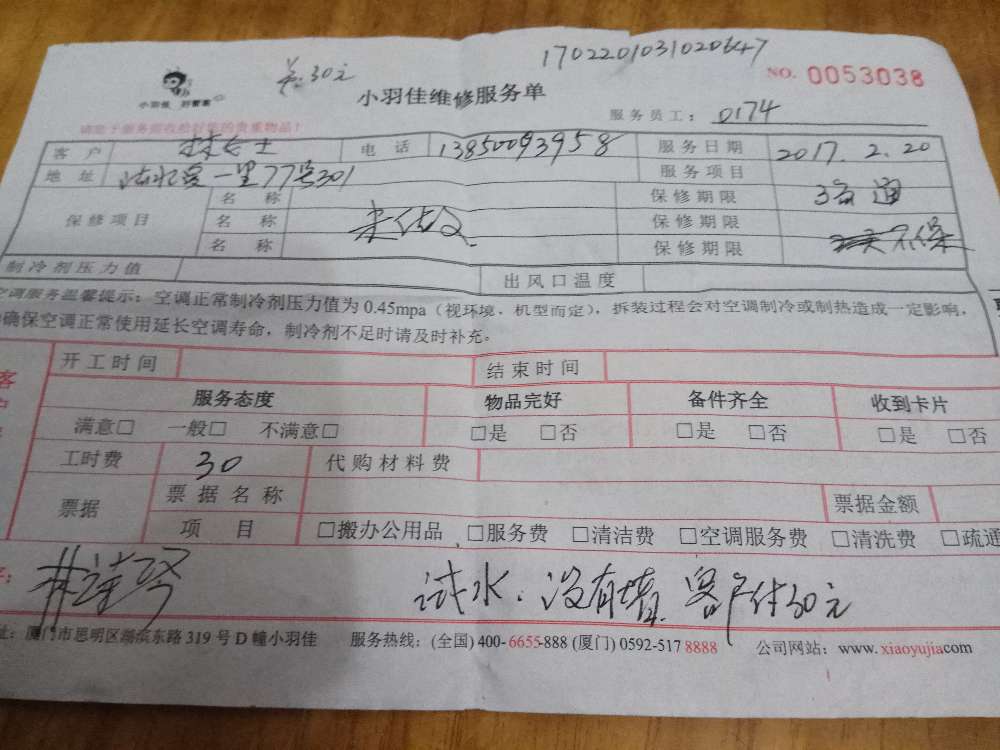 1702201031020647
差:30元
小羽佳 好管家
小羽佳维修服务单
NO. 0053038
服务员工: 0174
客户 林女士 电话 13850093958 服务日期 2017.2.20
地址 一里77号301 服务项目
保修项目 名称 保修期限
名称 未修 保修期限
名称 保修期限 不保
制冷剂压力值 出风口温度
空调服务温馨提示:空调正常制冷剂压力值为0.45mpa(视环境,机型而定),拆装过程会对空调制冷或制热造成一定影响,
确保空调正常使用延长空调寿命,制冷剂不足时请及时补充。
开工时间 结束时间
客户
服务态度 物品完好 备件齐全 收到卡片
满意□ 一般□ 不满意□ □是 □否 □是 □否 □是 □否
工时费 30 代购材料费
票据 票据名称 票据金额
项目 □搬办公用品 □服务费 □清洁费 □空调服务费 □清洗费 □疏通
试水,没有堵,客户付30元
址:厦门市思明区湖滨东路319号D幢小羽佳 服务热线:(全国)400-6655-888 (厦门)0592-517 8888 公司网站:www.xiaoyujiacom